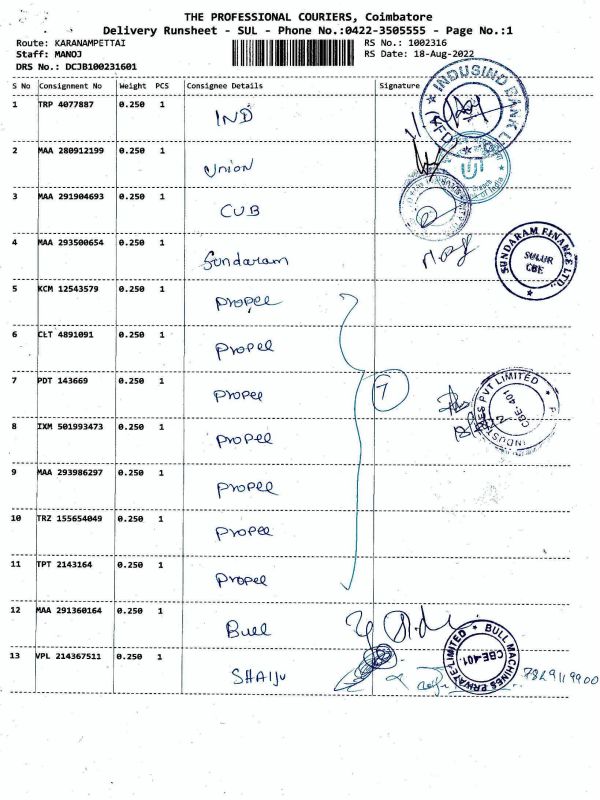 THE PROFESSIONAL COURIERS, Coimbatore
Delivery Runsheet - SUL - Phone No.:0422-3505555 - Page No.:1
Route: KARANAMPETTAI RS No.: 1002316
Staff: MANOJ RS Date: 18-Aug-2022
DRS No.: DCJB100231601
S No Consignment No Weight PCS Consignee Details Signature
1 TRP 4077887 0.250 1 IND
INDUSIND BANK
2 MAA 280912199 0.250 1 Union
3 MAA 291904693 0.250 1 CUB
4 MAA 293500654 0.250 1 Sundaram
SUNDARAM FINANCE LTD.,
SULUR
CBE
5 KCM 12543579 0.250 1 Propel
6 CLT 4891091 0.250 1 Propel
7 PDT 143669 0.250 1 Propel 7
PVT LIMITED
CBE-401
8 IXM 501993473 0.250 1 Propel
9 MAA 293986297 0.250 1 Propel
10 TRZ 155654049 0.250 1 Propel
11 TPT 2143164 0.250 1 Propel
12 MAA 291360164 0.250 1 Bull
BULL MACHINES PRIVATE LIMITED
CBE-401
13 VPL 214367511 0.250 1 SHAIJU